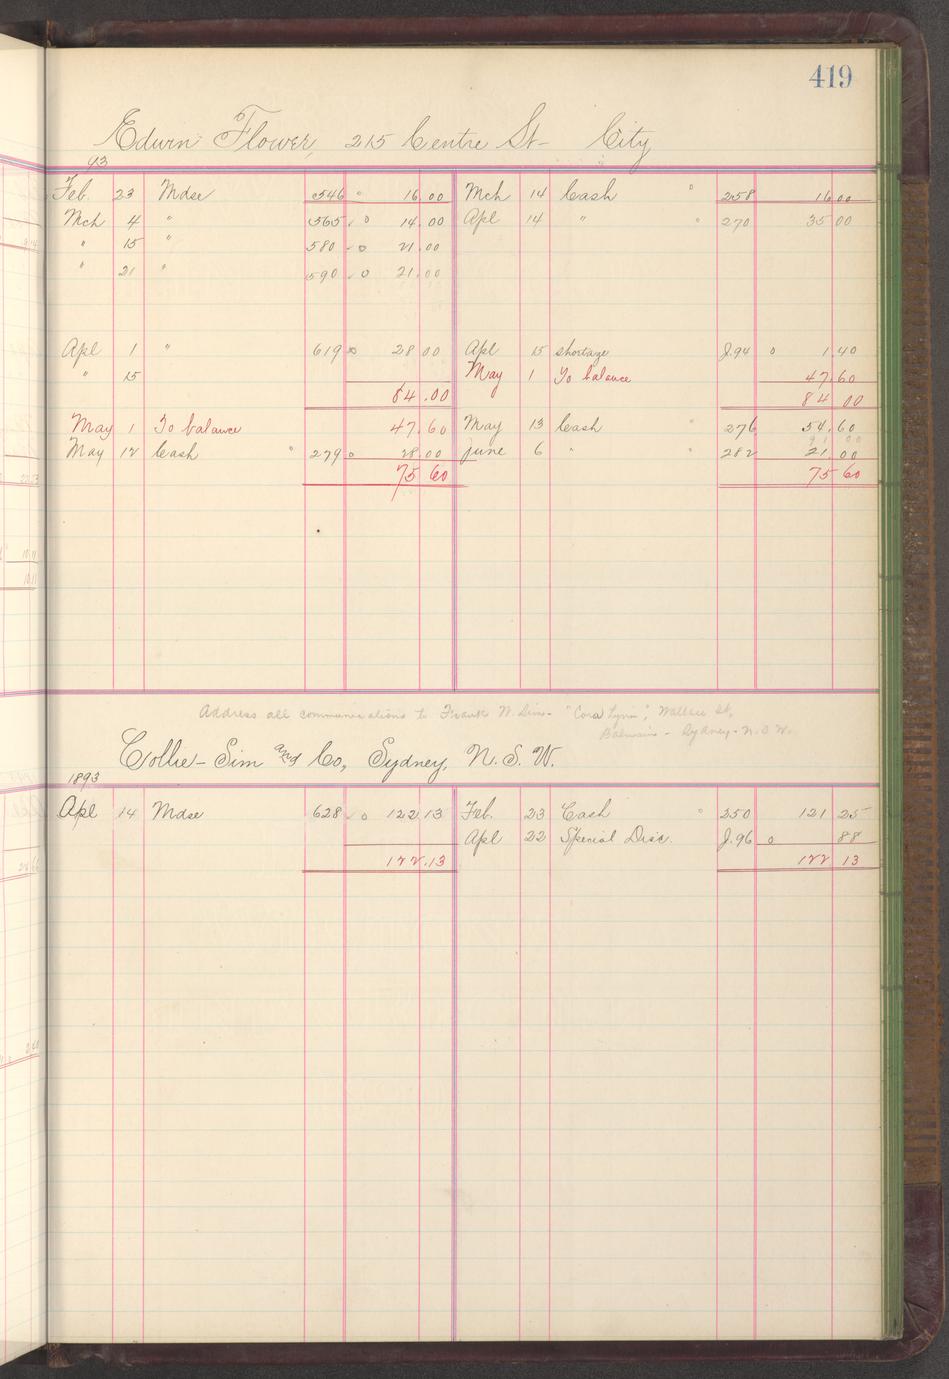 419
Edwin Flower, 215 Centre St- City
93
Feb. 23 Mdse 546 " 16.00 Mch 14 Cash " 258 16 00
Mch 4 " 565 o 14.00 Apl 14 " " 270 35 00
" 15 " 580 o 21.00
" 21 " 590 o 21.00
Apl 1 " 619 o 28 00 Apl 15 shortage J.94 o 1.40
" 15 May 1 To balance 47.60
84.00 84 00
May 1 To balance 47.60 May 13 Cash " 276 54.60
May 12 Cash " 279 o 28.00 June 6 " " 282 21 00
75 60 75 60
Address all communications to Frank W. Sim- "Cora Lynn", Wallace St,
Balmain - Sydney - N.S.W.
Collie - Sim and Co, Sydney, N.S.W.
1893
Apl 14 Mdse 628 o 122.13 Feb. 23 Cash " 250 121 25
Apl 22 Special Disc. J.96 o 88
122.13 122 13